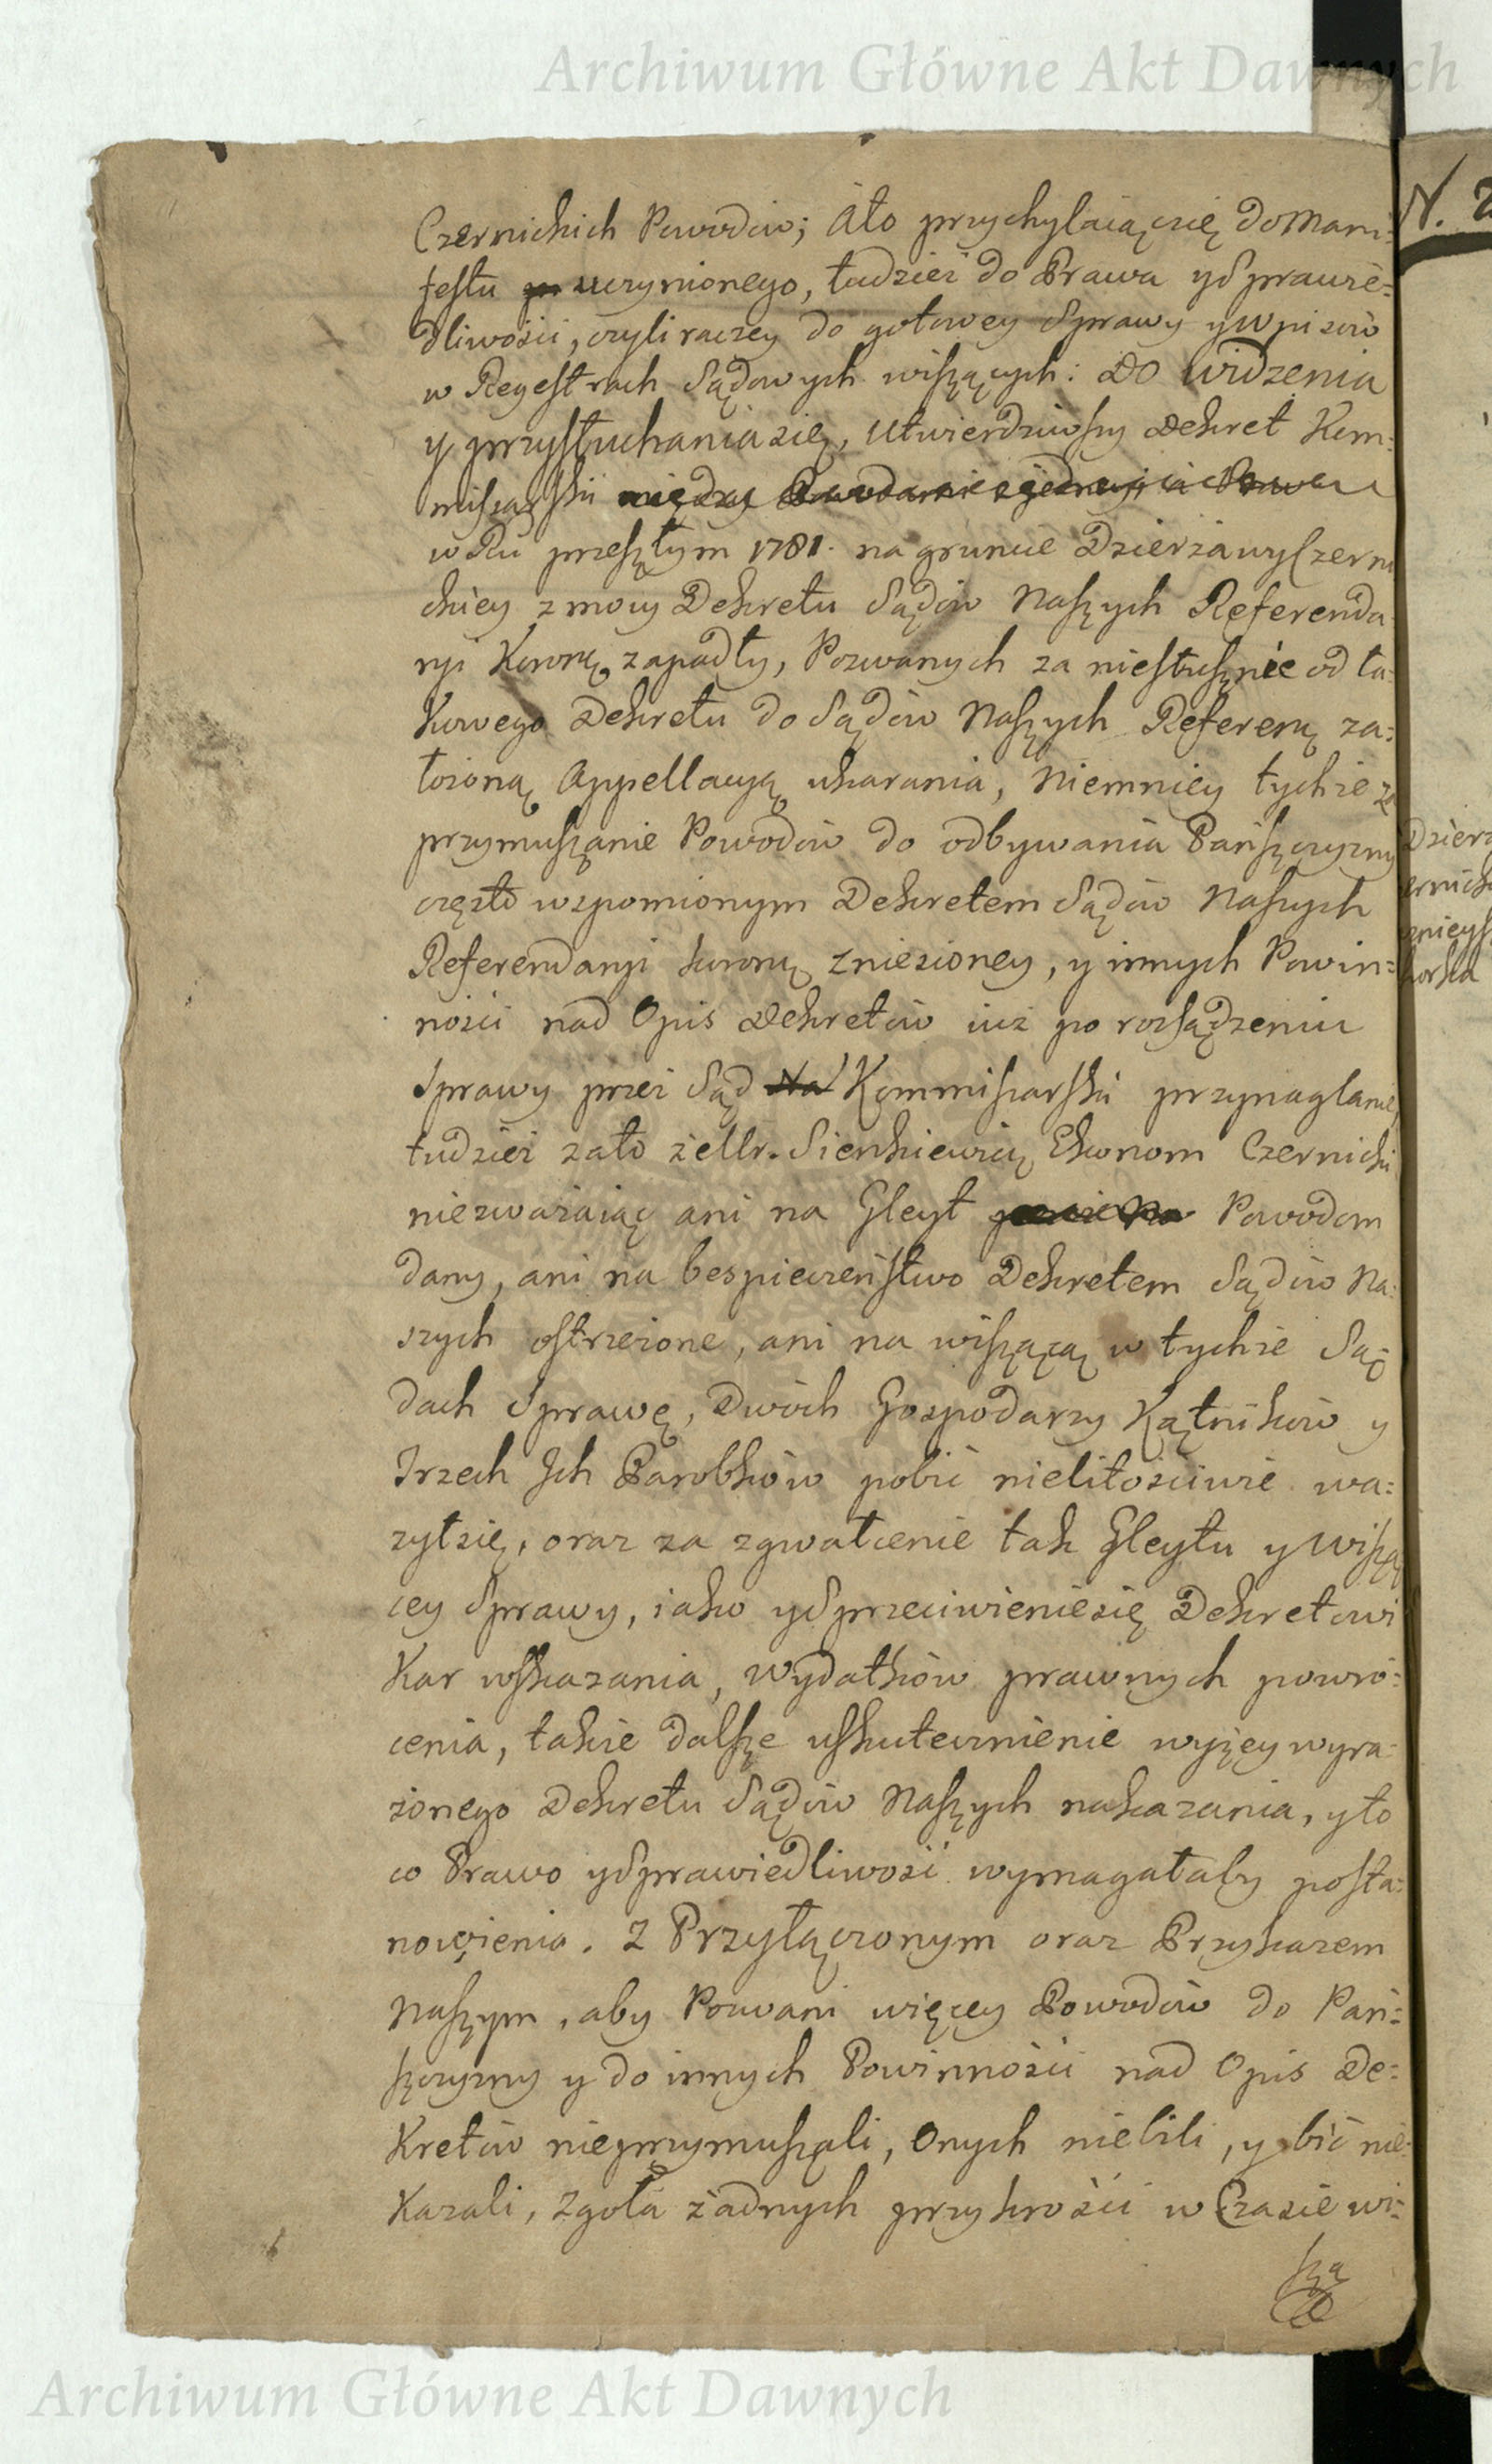 Archiwum Główne Akt Dawnych
Czernichich Powodów; Ato przychylaiącsię do Mani:
festu uczynionego, tudzież do Prawa y Sprawie=
dliwości, czyli raczey do gotowey Sprawy y wpisów
w Regestrach Sądowych wiszących: Do Widzenia
y przysłuchania się, Utwierdziwszy Dekret Kom:
missarski między Powodami
w Ru przeszłym 1781. na gruncie Dzierżawy Czerni
ckiey z mocy Dekretu Sądów Naszych Referenda
ryi Koronę zapadły, Pozwanych za niesłusznie od ta:
kowego Dekretu do Sądów Naszych Referenę za=
łożoną Appellacyą ukarania, Niemniey tychże za
przymuszanie Powodów do odbywania Pańszczyzny
często wspomionym Dekretem Sądów Naszych
Referendaryi koronę zniesioney, y innych Powin=
ności nad Opis Dekretów iuż po rozsądzeniu
Sprawy przez Sąd Na Kommissarski przynaglanie,
tudzież zato że Ur. Sienkiewicz Ekonom Czernicki
niezważaiąc ani na Gleyt Powodom
dany, ani na bespieczeństwo Dekretem Sądów Na:
szych ostrzeżone, ani na wiszącą w tychże Są
dach Sprawę, Dwóch Gospodarzy Kątników y
Trzech Ich Parobków pobić nielitościwie wa=
żył się, oraz za zgwałcenie tak Gleytu y Wiszą
cey Sprawy, iako y Sprzeciwieniesię Dekretowi
Kar wskazania, Wydatków prawnych powró=
cenia, także dalsze uskutecznienie wyżey wyra:
żonego Dekretu Sądów Naszych nakazania, y to
co Prawo y Sprawiedliwość wymagałaby posta=
nowienia. Z Przyłączonym oraz Przykazem
Naszym, aby Pozwani więcey Powodów do Pań=
szczyzny y do innych Powinności nad Opis De=
kretów nieprzymuszali, Onych niebili, y bić nie=
kazali, Zgoła żadnych przykrości w Czasie wi=
szą
N. 2
Dzierz
ernick
znieys
orska
Archiwum Główne Akt Dawnych